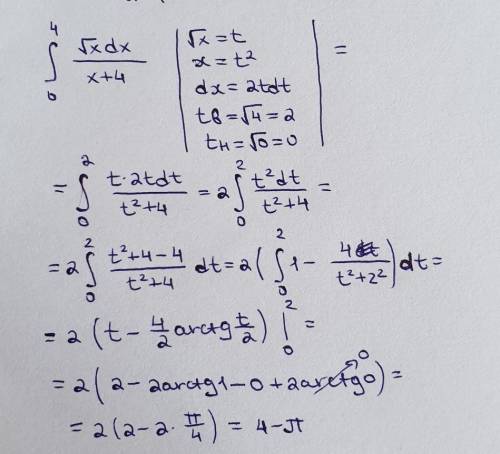 ∫₀⁴ √x dx / (x+4) | √x = t
x = t²
dx = 2tdt
tв = √4 = 2
tн = √0 = 0 | =
= ∫₀² t·2tdt / (t²+4) = 2 ∫₀² t²dt / (t²+4) =
= 2 ∫₀² (t²+4-4) / (t²+4) dt = 2 ( ∫₀² 1 - 4 / (t²+2²) ) dt =
= 2 ( t - 4/2 arctg t/2 ) |₀² =
= 2 ( 2 - 2arctg1 - 0 + 2arctg0 ) = 0
= 2 ( 2 - 2 · π/4 ) = 4 - π